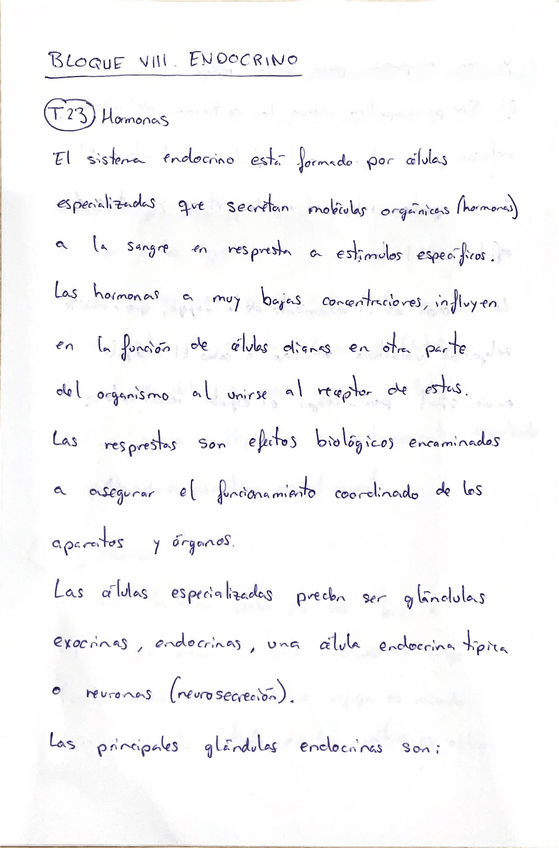 BLOQUE VIII. ENDOCRINO
T23 Hormonas
El sistema endocrino está formado por células
especializadas que secretan moléculas orgánicas (hormonas)
a la sangre en respuesta a estímulos específicos.
Las hormonas a muy bajas concentraciones, influyen
en la función de células dianas en otra parte
del organismo al unirse al receptor de estas.
Las respuestas son efectos biológicos encaminados
a asegurar el funcionamiento coordinado de los
aparatos y órganos.
Las células especializadas pueden ser glándulas
exocrinas, endocrinas, una célula endocrina típica
o neuronas (neurosecreción).
Las principales glándulas endocrinas son: